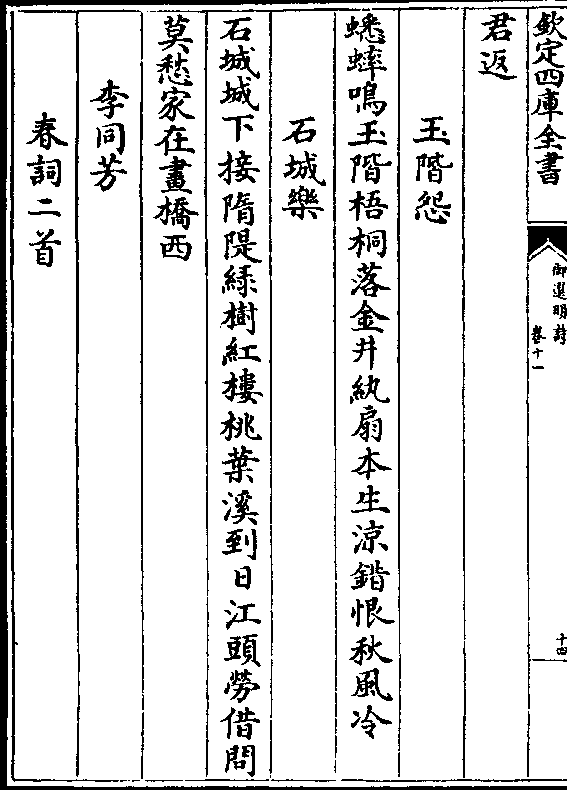 欽定四庫全書
御選明詩
卷十一
十四
君返
玉階怨
蟋蟀鳴玉階梧桐落金井紈扇本生涼錯恨秋風冷
石城樂
石城城下接隋隄綠樹紅樓桃葉溪到日江頭勞借問
莫愁家在畫橋西
李同芳
春詞二首